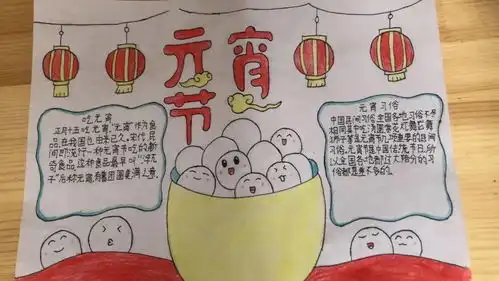 元宵节
吃元宵
正月十五吃元宵，"元宵"作为食
品，在我国也由来已久。宋代，民
间即流行一种元宵节吃的新
奇食品。这种食品，最早叫"浮元
子"后称元宵，有团团圆圆美满之意。
元宵习俗
中国民间习俗全国各地习俗不尽
相同其中吃汤圆赏花灯舞龙舞
狮子等是元宵节几项重要的民间
习俗。元宵节是中国传统节日，所
以全国各地都过，大部分的习
俗都是差不多的。